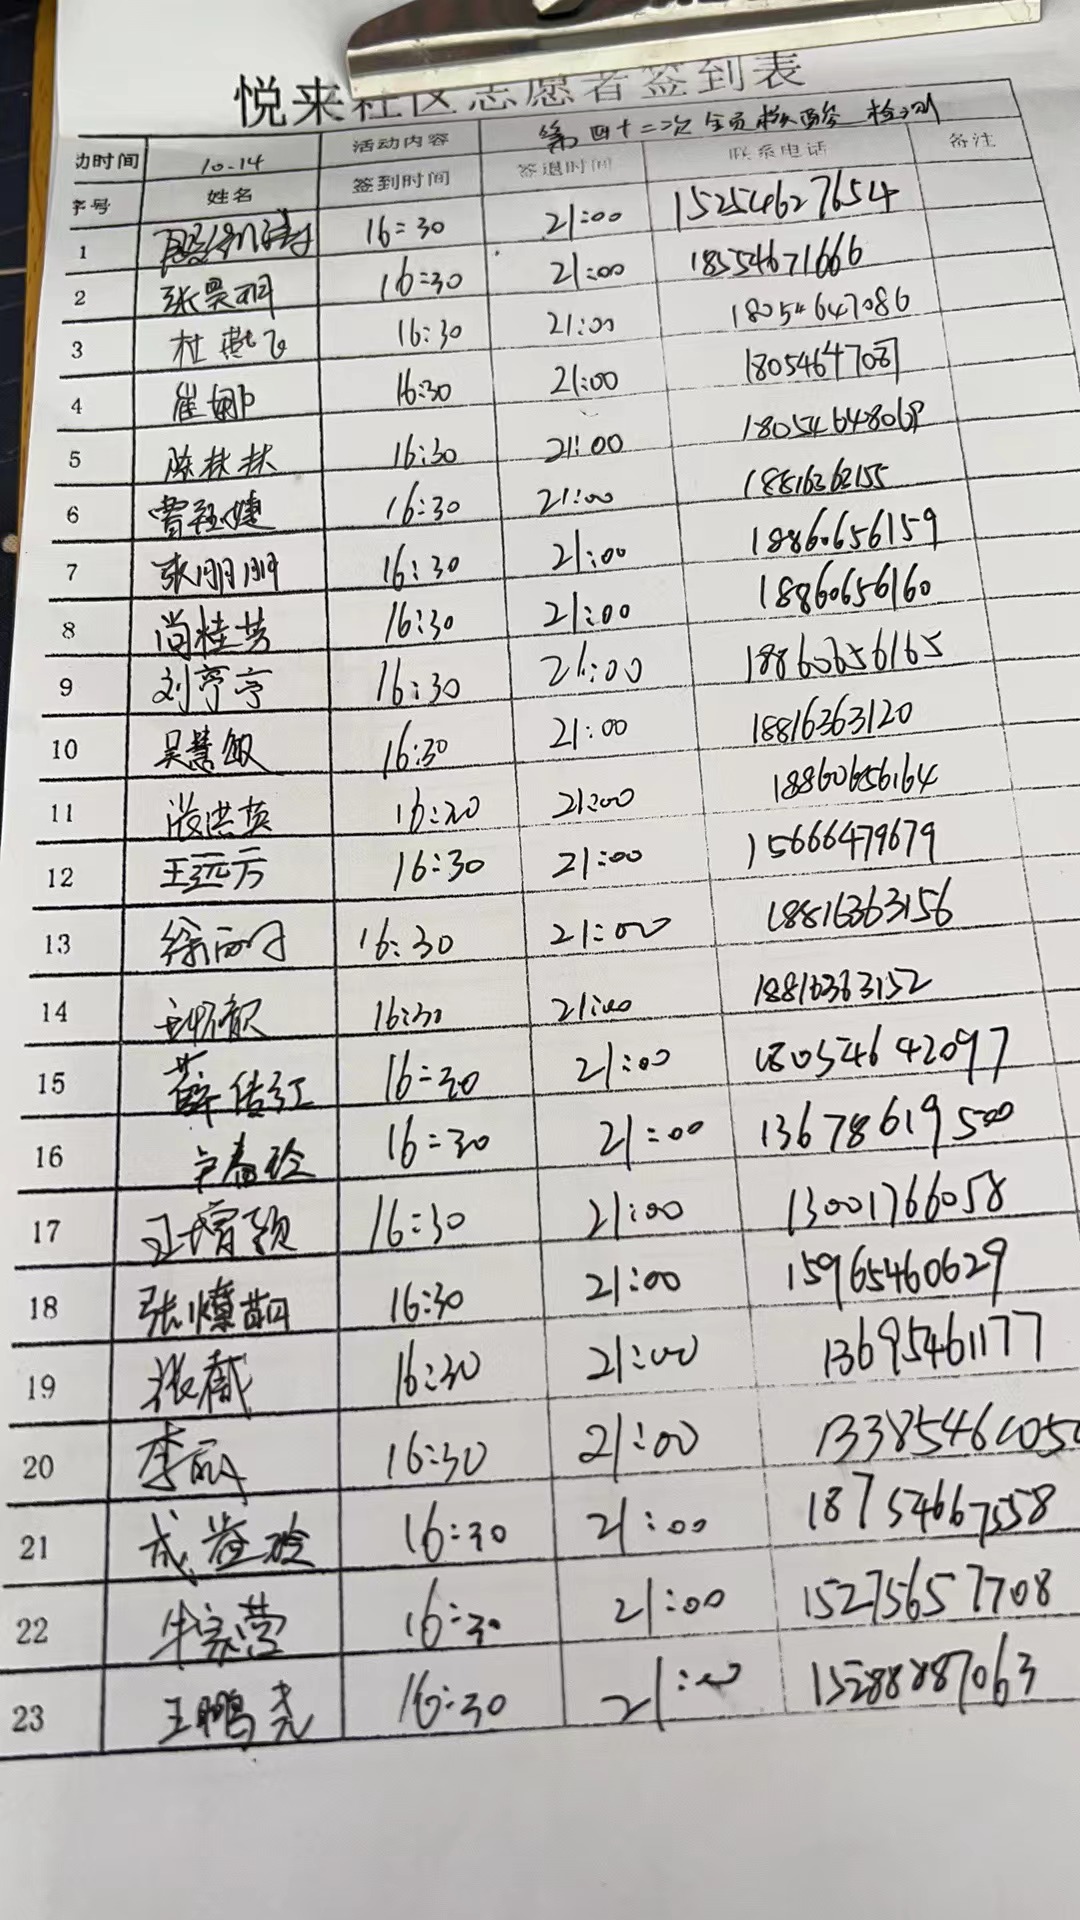 悦来社区志愿者签到表
动时间 10-14 活动内容 第四十二次全员核酸 检测
序号 姓名 签到时间 签退时间 联系电话 备注
1 16:30 21:00 15254627654
2 张昊明 16:30 21:00 18554671666
3 杜燕飞 16:30 21:00 18054647086
4 崔娜 16:30 21:00 18054647087
5 陈扶扶 16:30 21:00 1805464806
6 曹 婕 16:30 21:00 18816363155
7 张朋朋 16:30 21:00 18860656159
8 尚桂芳 16:30 21:00 18860656160
9 刘亭亭 16:30 21:00 18860656165
10 吴慧敏 16:30 21:00 18816363120
11 段洪英 16:30 21:00 18860656164
12 王远方 16:30 21:00 15666479679
13 徐丽 16:30 21:00 18816363156
14 16:30 21:00 18816363152
15 薛传红 16:30 21:00 18054642097
16 春玲 16:30 21:00 13678619500
17 王增颖 16:30 21:00 13001766058
18 张 16:30 21:00 15965460629
19 张 16:30 21:00 13695461177
20 李丽 16:30 21:00 1338546
21 成 玲 16:30 21:00 18754667558
22 牛家营 16:30 21:00 15275657708
23 王鹏尧 16:30 21:00 15288887063